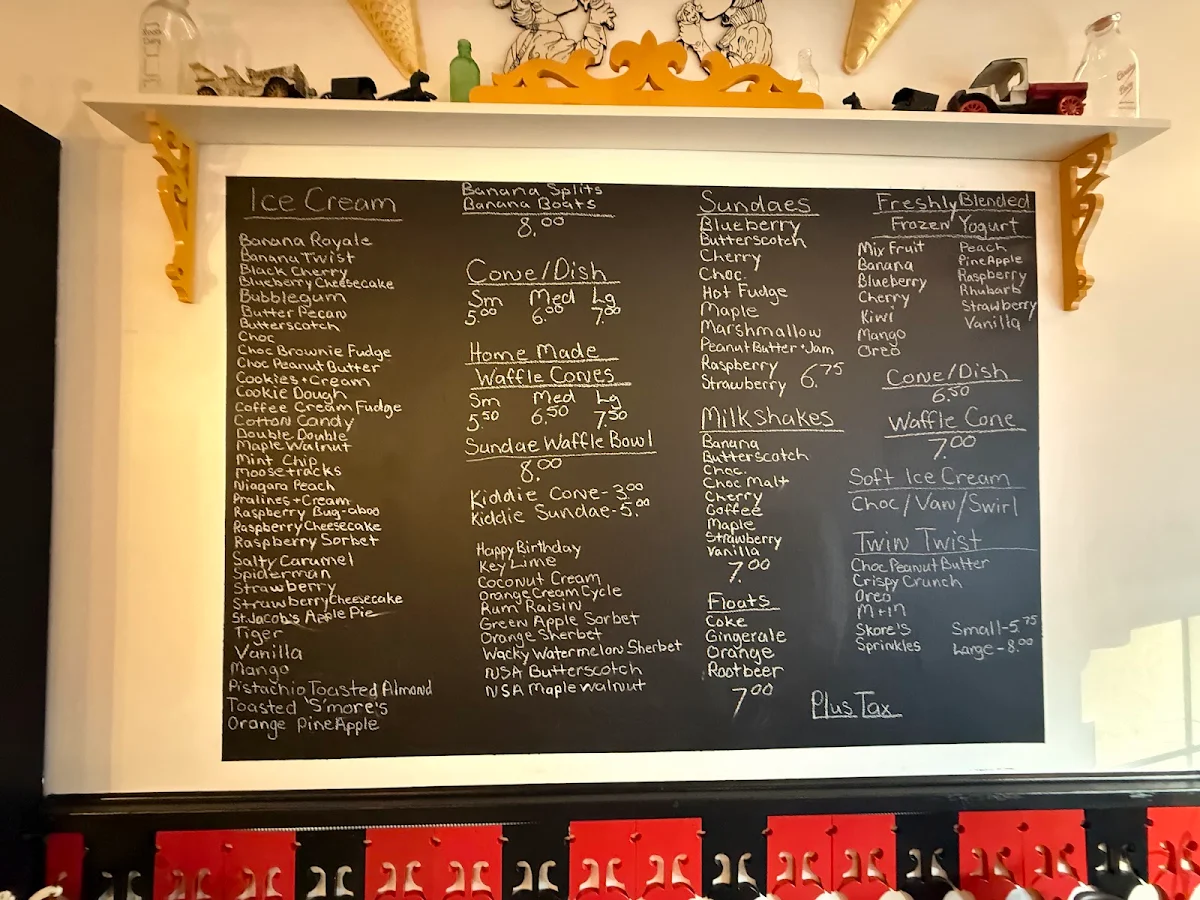 Ice Cream
Banana Royale
Banana Twist
Black Cherry
Blueberry Cheesecake
Bubblegum
Butter Pecan
Butterscotch
Choc
Choc Brownie Fudge
Choc Peanut Butter
Cookies + Cream
Cookie Dough
Coffee Cream Fudge
Cotton Candy
Double Double
Maple Walnut
Mint Chip
Moosetracks
Niagara Peach
Pralines + Cream
Raspberry Bug-aboo
Raspberry Cheesecake
Raspberry Sorbet
Salty Caramel
Spiderman
Strawberry
Strawberry Cheesecake
St.Jacob's Apple Pie
Tiger
Vanilla
Mango
Pistachio Toasted Almond
Toasted 'S'more's
Orange PineApple
Banana Splits
Banana Boats
8.00
Cone/Dish
Sm Med Lg
5.00 6.00 7.00
Home Made
Waffle Cones
Sm Med Lg
5.50 6.50 7.50
Sundae Waffle Bowl
8.00
Kiddie Cone - 3.00
Kiddie Sundae - 5.00
Happy Birthday
Key Lime
Coconut Cream
Orange Cream Cycle
Rum Raisin
Green Apple Sorbet
Orange Sherbet
Wacky Watermelon Sherbet
NSA Butterscotch
NSA Maple Walnut
Sundaes
Blueberry
Butterscotch
Cherry
Choc.
Hot Fudge
Maple
Marshmallow
Peanut Butter + Jam
Raspberry
Strawberry 6.75
Milkshakes
Banana
Butterscotch
Choc.
Choc Malt
Cherry
Coffee
Maple
Strawberry
Vanilla
7.00
Floats
Coke
Gingerale
Orange
Rootbeer
7.00
Freshly Blended
Frozen Yogurt
Mix Fruit
Banana
Blueberry
Cherry
Kiwi
Mango
Oreo
Peach
PineApple
Raspberry
Rhubarb
Strawberry
Vanilla
Cone/Dish
6.50
Waffle Cone
7.00
Soft Ice Cream
Choc/Van/Swirl
Twin Twist
Choc Peanut Butter
Crispy Crunch
Oreo
M+M
Skore's Small - 5.75
Sprinkles Large - 8.00
Plus Tax